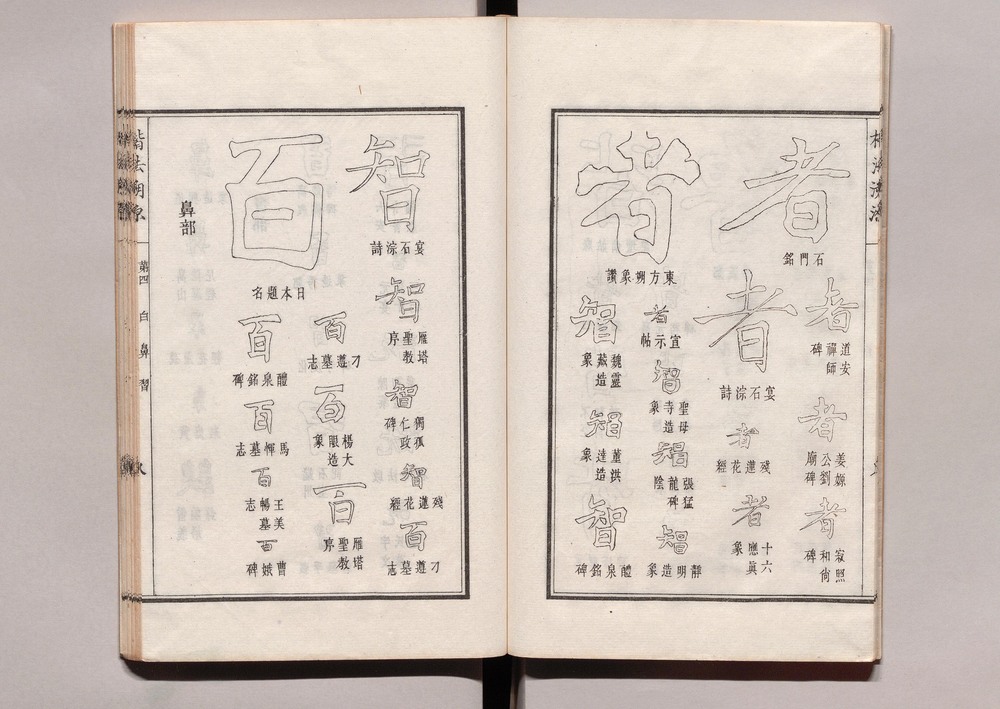 楷法溯源
者
石門銘
者
道安禪師碑
者
姜嫄公劉廟碑
者
寂照和尙碑
者
宴石淙詩
者
殘蓮花經
者
十六應眞象
者
東方朔象讚
者
宣示帖
智
聖母寺造象
智
張猛龍碑陰
智
靜明造象
智
魏靈藏造象
智
董洪達造象
智
醴泉銘碑
智
宴石淙詩
智
雁塔聖教序
智
獨孤仁政碑
智
殘蓮花經
百
刁遵墓志
百
刁遵墓志
百
楊大眼造象
百
雁塔聖教序
百
日本題名
百
醴泉銘碑
百
馬惲墓志
百
王美暢墓志
百
曹娥碑
鼻部
楷法溯源
第四 白 鼻 習